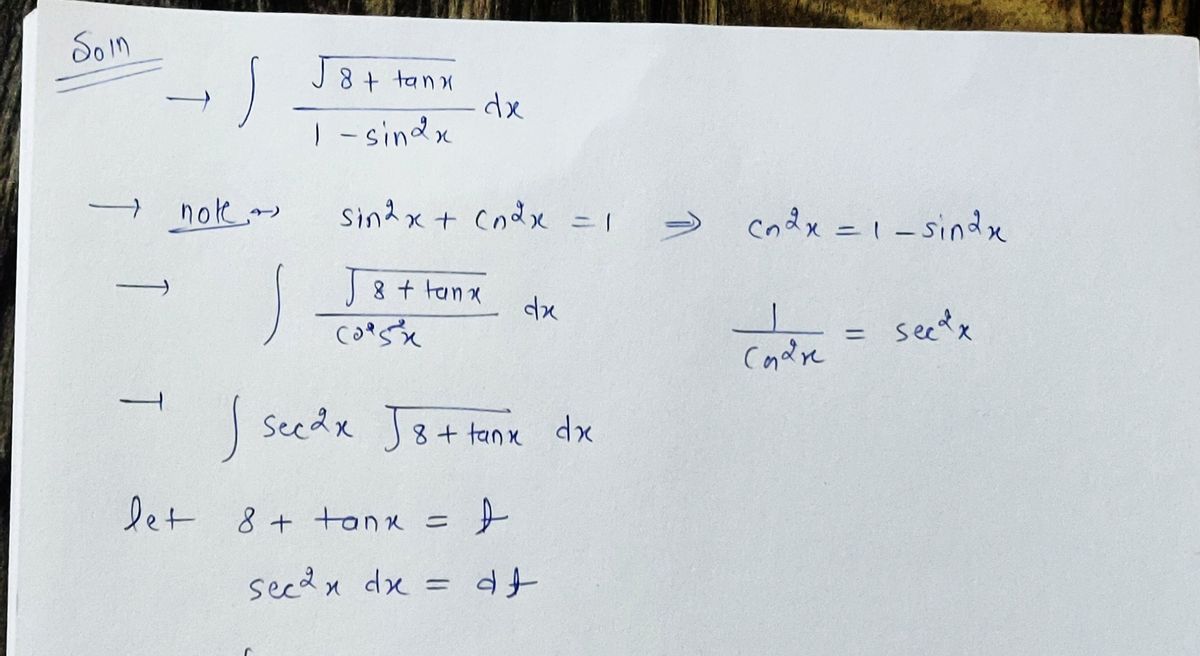 Soln
→ ∫ √8 + tanx / 1 - sin²x dx
→ note → sin²x + cos²x = 1 ⇒ cos²x = 1 - sin²x
→ ∫ √8 + tanx / cos²x dx
1 / cos²x = sec²x
→ ∫ sec²x √8 + tanx dx
let 8 + tanx = t
sec²x dx = dt